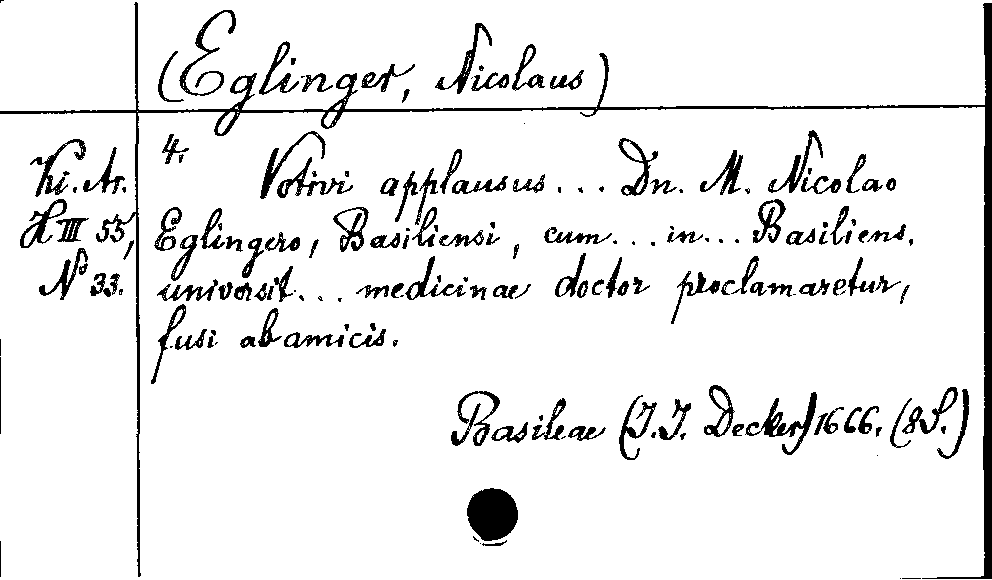 (Eglinger, Nicolaus)
4.
Votivi applausus... Dn. M. Nicolao
Ki. Ar.
H III 55,
No 33.
Eglingero, Basiliensi, cum... in... Basiliens.
universit... medicinae doctor proclamaretur,
fusi ab amicis.
Basileae (J. J. Decker) 1666. (8 S.)